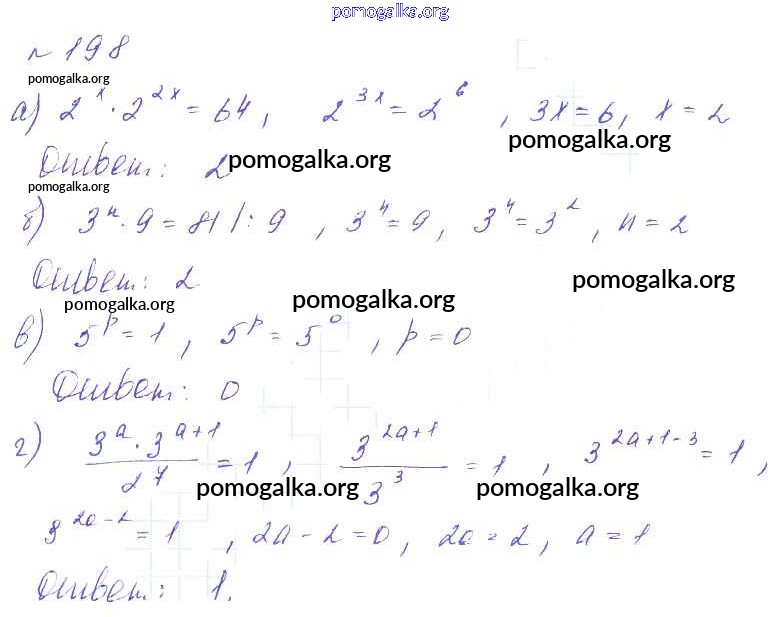 pomogalka.org
№ 198
pomogalka.org
а) 2^x · 2^{2x} = 64, 2^{3x} = 2^6, 3x = 6, x = 2
pomogalka.org
Ответ: 2
pomogalka.org
pomogalka.org
б) 3^n · 9 = 81 |: 9, 3^n = 9, 3^n = 3^2, n = 2
Ответ: 2.
pomogalka.org
pomogalka.org
pomogalka.org
в) 5^p = 1, 5^p = 5^0, p = 0
Ответ: 0
г) (3^a · 3^{a+1}) / 27 = 1, 3^{2a+1} / 3^3 = 1, 3^{2a+1-3} = 1,
pomogalka.org
pomogalka.org
3^{2a-2} = 1, 2a - 2 = 0, 2a = 2, a = 1
Ответ: 1.